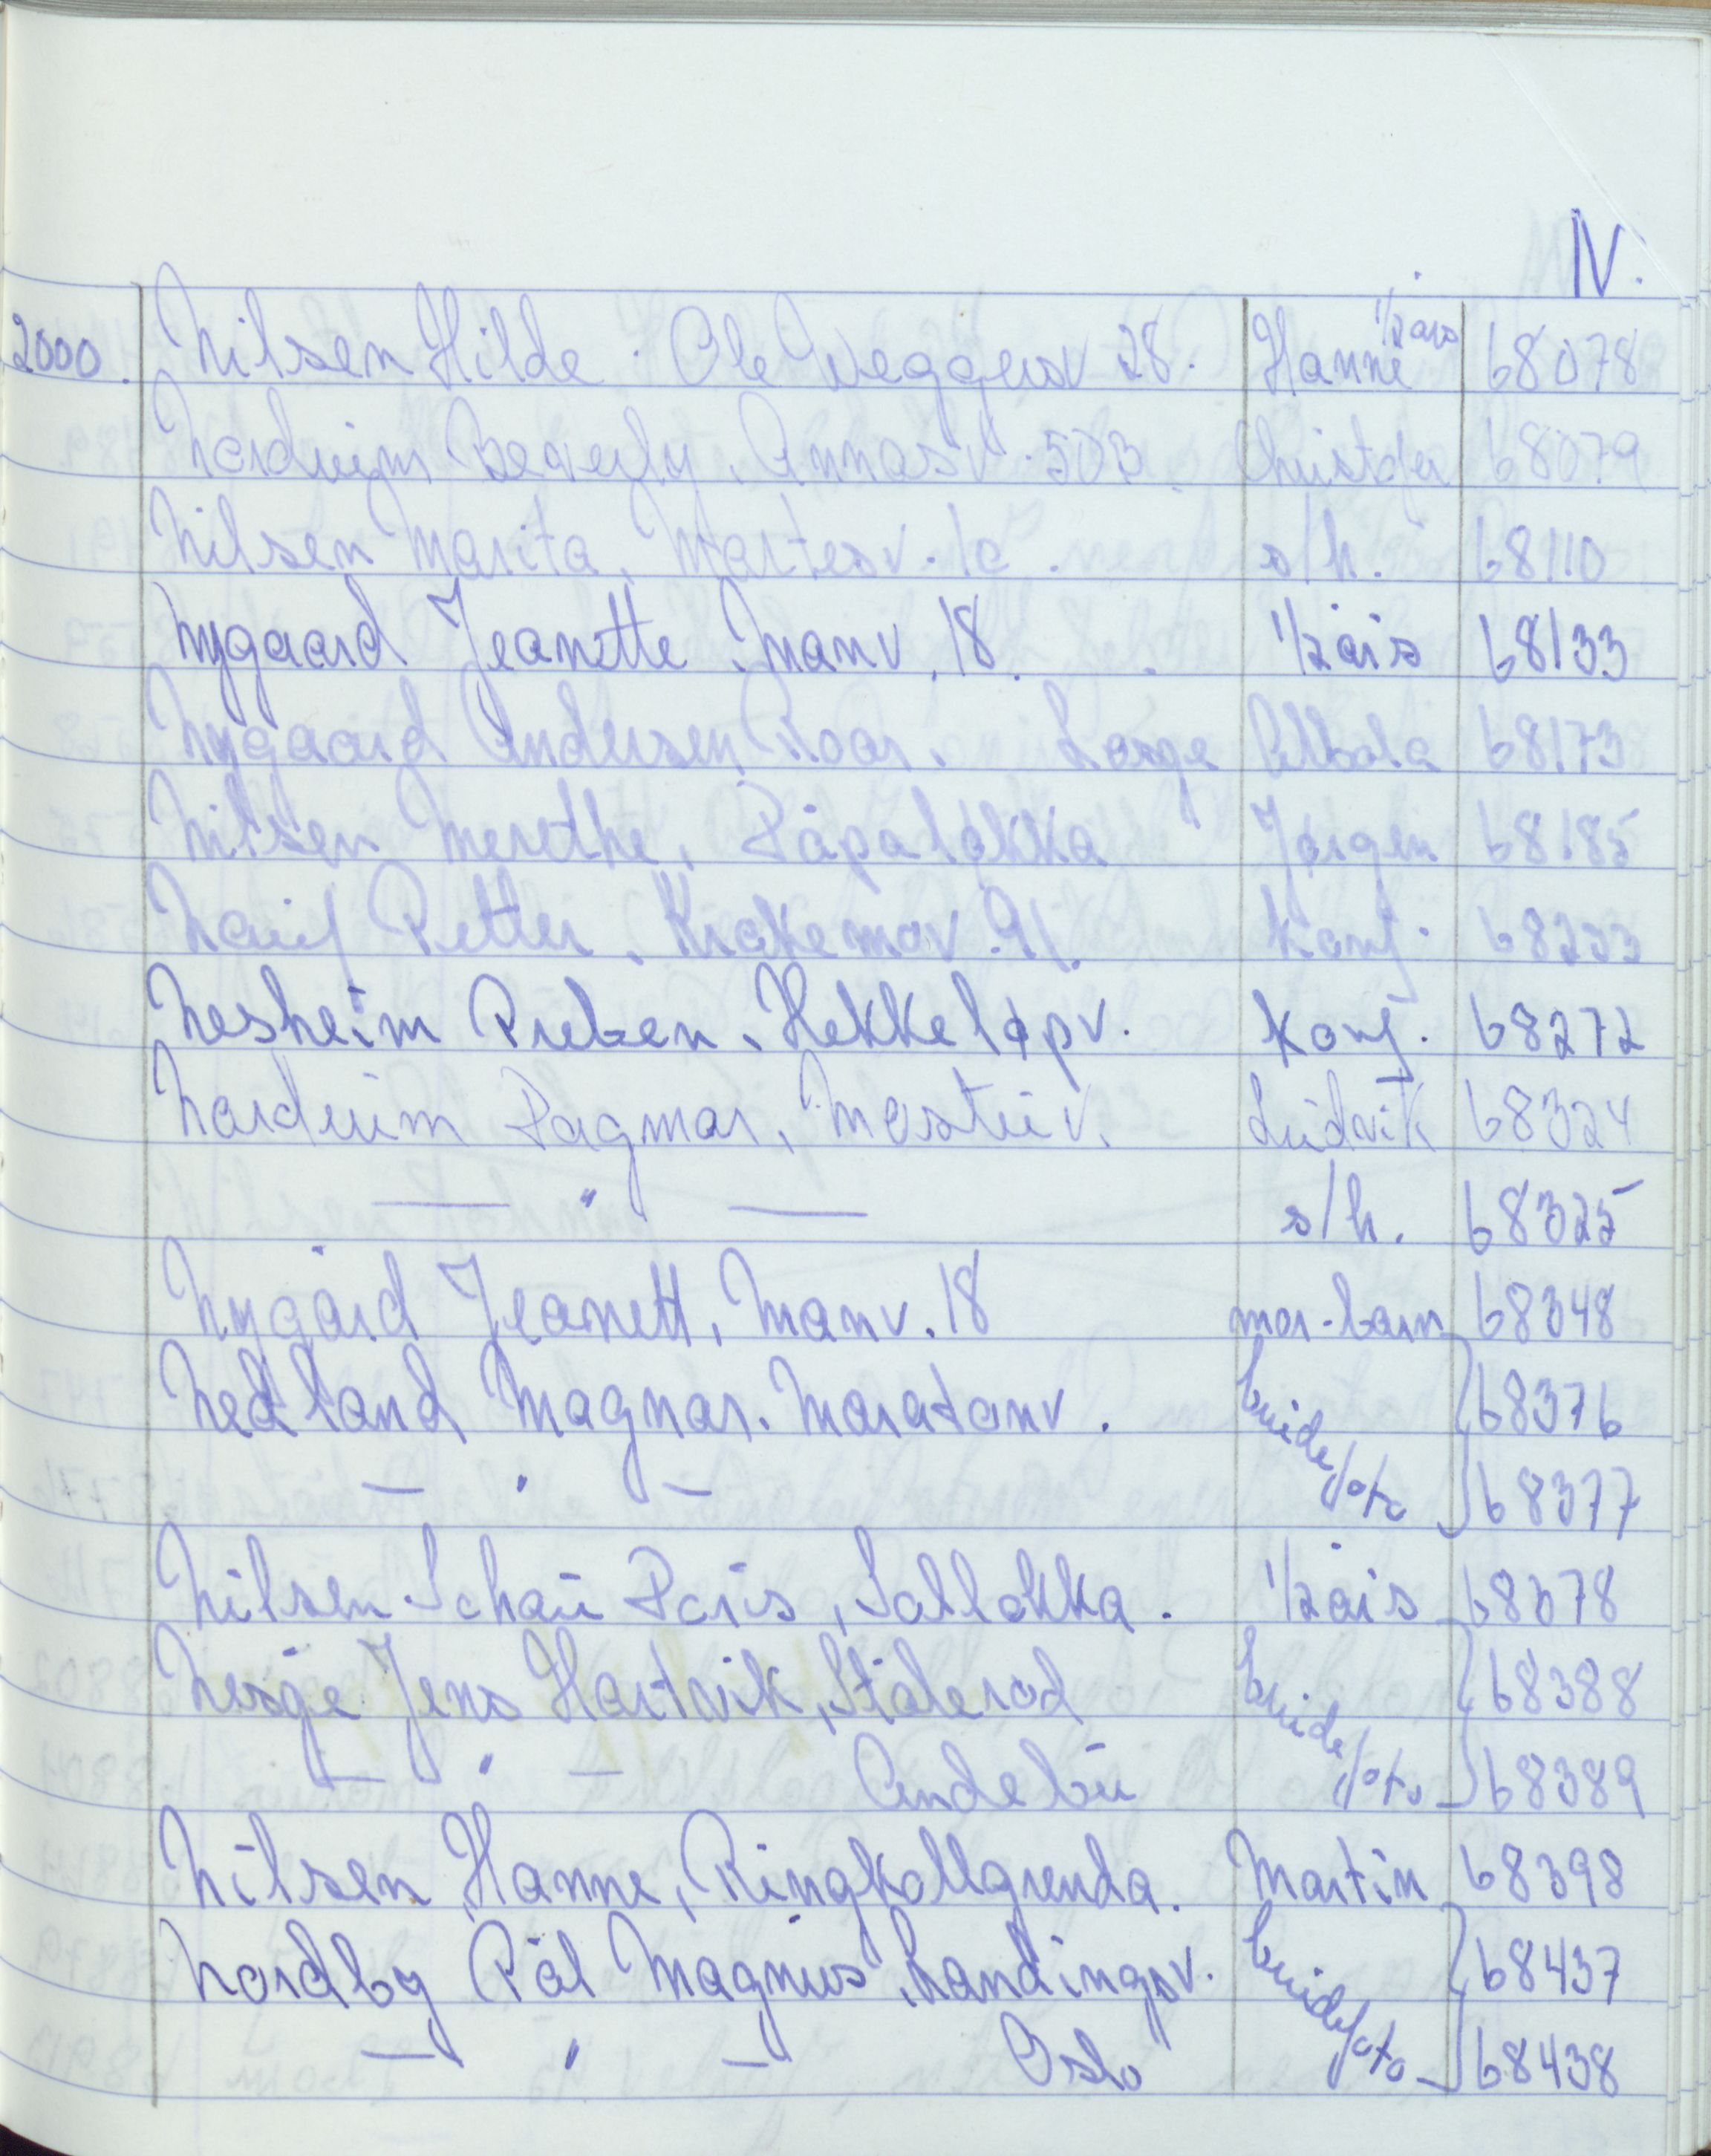 N.
2000. Nilsen Hilde. Ole Weggersv 28. Hanne 1/2 års 68078
Nordheim Beverly, Annasv. 503. Christofer 68079
Nilsen Marita, Martesv. 1c. s/h. 68110
Nygaard Jeanette, Manv. 18. 1/2 års 68133
Nygaard Andersen, Roar. Lasge 68173
Nilsen Merethe, Påpaløkka Jørgen 68185
Petter, Krakemov. 91. Konf. 68233
Nesheim Preben, Hekkeløpv. Konf. 68272
Nordheim Dagmar, v. Ludvik 68324
— " — s/h. 68325
Nygård Jeanett, Manv. 18 mor-barn 68348
Nedland Magnar. Maratonv. brudefoto 68376
— " — 68377
Nilsen-Schau Paris, Solløkka. 1/2 års 68378
Jens Hartvik, Stålerød brudefoto 68388
— " — Andebu 68389
Nilsen Hanne, Ringkollgrenda. Martin 68398
Nordby Pål Magnus, Landingsv. brudefoto 68437
— " — Oslo 68438